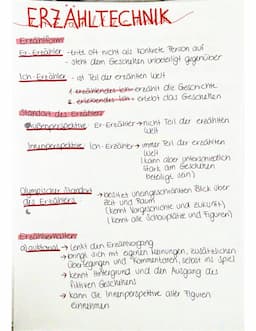 ERZÄHLTECHNIK
Erzählform
Er-Erzähler - tritt oft nicht als konkrete Person auf
- steht dem Geschehen unbeteiligt gegenüber
Ich-Erzähler - ist Teil der erzählten Welt
1. erzählendes Ich → erzählt die Geschichte
2. erlebendes Ich → erlebt das Geschehen
Standort des Erzählers
Außenperspektive Er-Erzähler → nicht Teil der erzählten
Welt
Innenperspektive Ich-Erzähler → Teil der erzählten
Welt
(kann aber unterschiedlich
stark am Geschehen
beteiligt sein)
Olympischer Standort → besitzt uneingeschränkten Blick über
des Erzählers Zeit und Raum
(kennt Vorgeschichte und Zukunft)
(kennt alle Schauplätze und Figuren)
Erzählverhalten
auktorial → lenkt den Erzählvorgang
→ bringt sich mit eigenen Meinungen, zusätzlichen
Überlegungen und Kommentaren, selbst ins Spiel
→ kennt Hintergrund und den Ausgang des
fiktiven Geschehens
→ kann die Innenperspektive aller Figuren
einnehmen